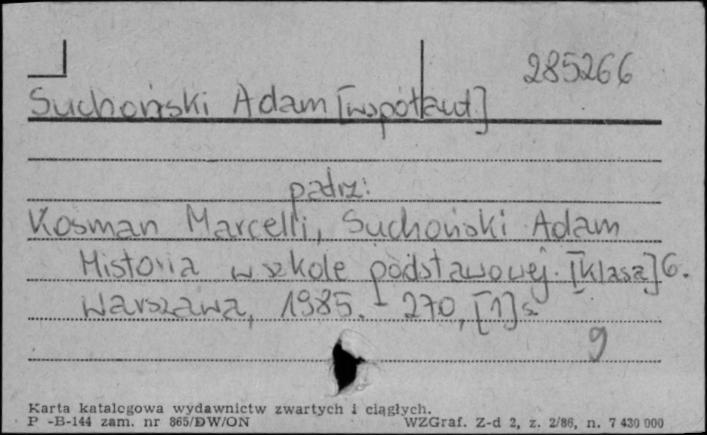 285266
Suchoński Adam [współaut.]
patrz:
Kosman Marceli, Suchoński Adam
Historia w szkole podstawowej. [Klasa] 6.
Warszawa, 1985. - 270, [1] s.
g
Karta katalogowa wydawnictw zwartych i ciągłych.
P -B-144 zam. nr 865/DW/ON WZGraf. Z-d 2, z. 2/86, n. 7 430 000